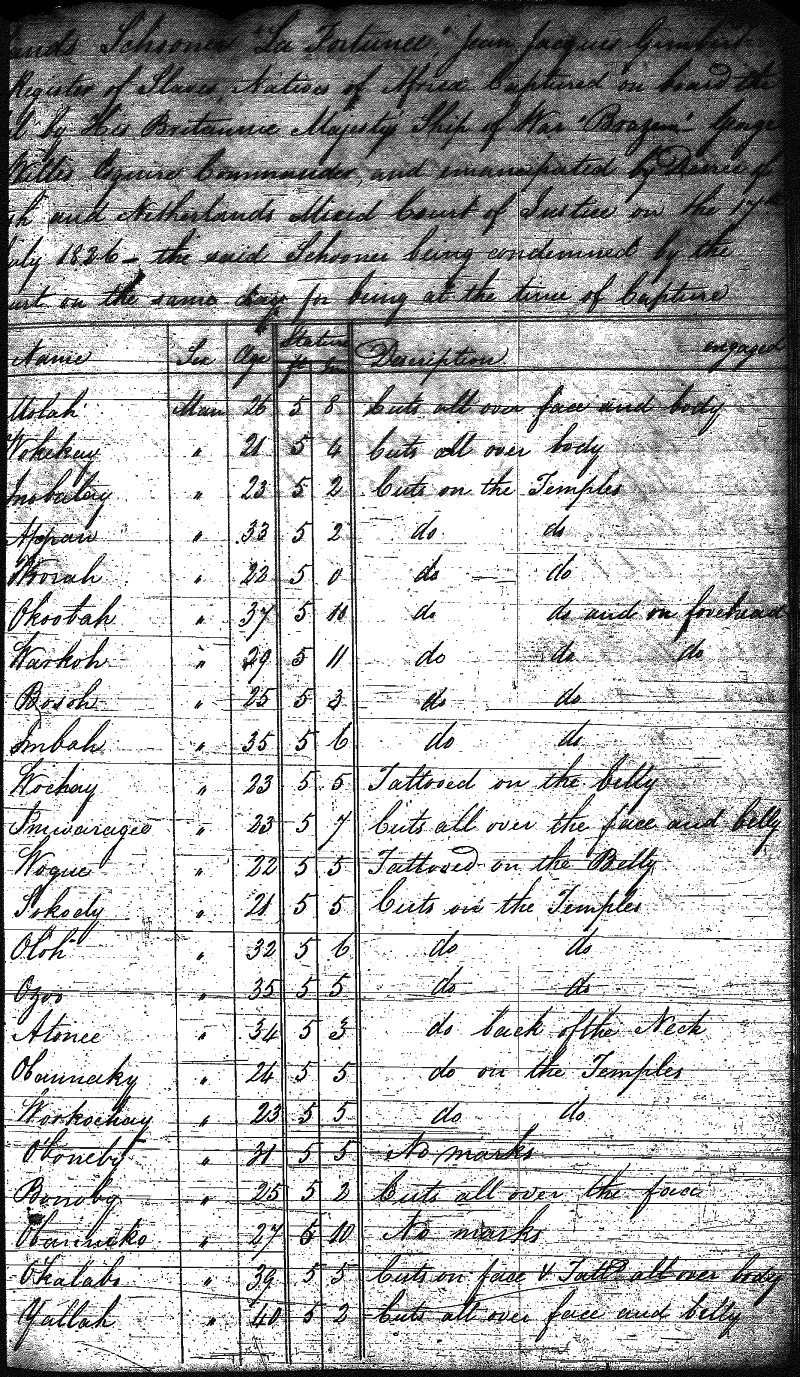 ands Schooner "La Fortunee," Jean Jacques Gimbert
Register of Slaves, Natives of Africa Captured on board the
by His Britannic Majesty's Ship of War "Brazen" George
Willes Esquire Commander, and emancipated by Decree of
sh and Netherlands Mixed Court of Justice on the 17th
uly 1826 - the said Schooner being condemned by the
urt on the same day for being at the time of Capture
engaged
Name Sex Age Stature ft In Description
Man 26 5 8 Cuts all over face and body
Wokekay " 21 5 4 Cuts all over body
" 23 5 2 Cuts on the Temples
Appan " 33 5 2 do do
" 22 5 0 do do
Okoobah " 37 5 10 do do and on forehead
Warkoh " 29 5 11 do do do
Bosoh " 25 5 3 do do
Imbah " 35 5 6 do do
Wochay " 23 5 5 Tattooed on the belly
Inwaragee " 23 5 7 Cuts all over the face and belly
Wogue " 22 5 5 Tattooed on the Belly
Sokody " 21 5 5 Cuts on the Temples
Oloh " 32 5 6 do do
Ozoo " 35 5 5 do do
Atonee " 34 5 3 do back of the Neck
Obannaky " 24 5 5 do on the Temples
Workochay " 23 5 5 do do
Oboneby " 31 5 5 No marks
Bonoby " 25 5 2 Cuts all over the face
Obanniko " 27 5 10 No marks
Okalabo " 39 5 5 Cuts on face & Tattd all over body
Yallah " 40 5 2 Cuts all over face and belly